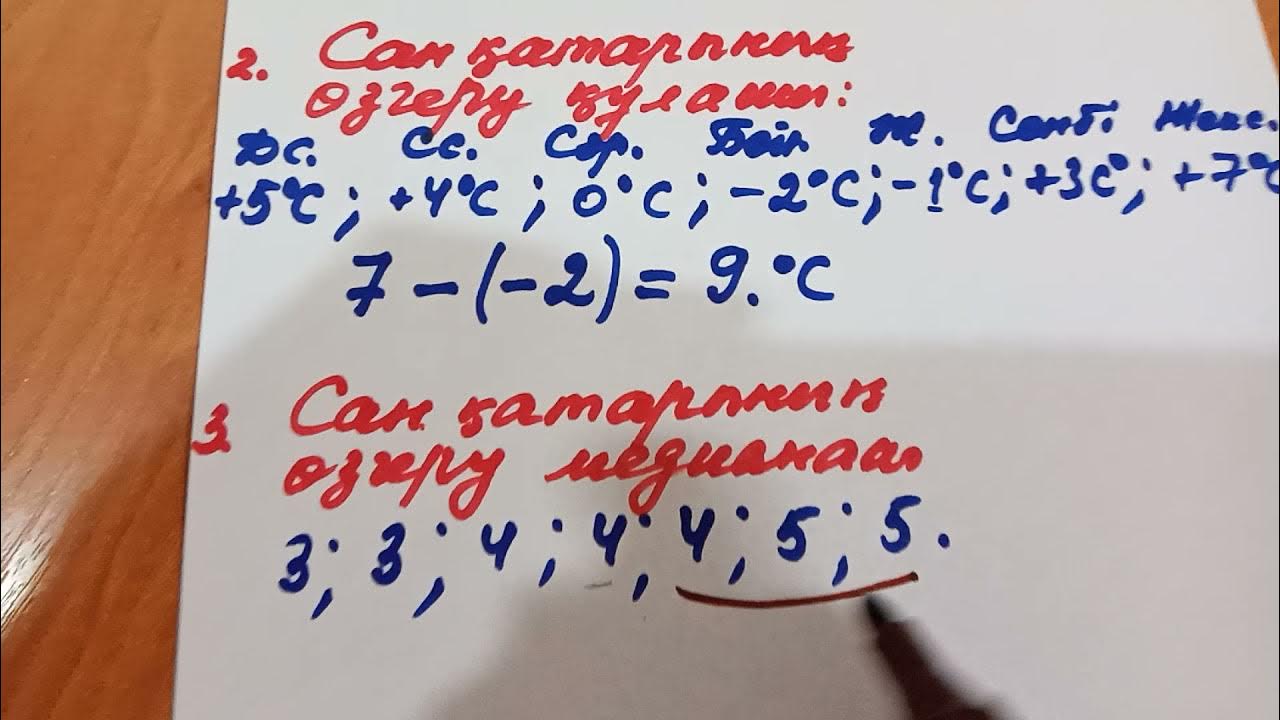 2. Сан қатарының
өзгеру құлашы:
Дс. Сс. Сәр. Бейс. Ж. Сенбі Жекс.
+5°C; +4°C; 0°C; -2°C; -1°C; +3C°; +7°C
7-(-2)=9.°C
3. Сан қатарының
өзгеру медианасы.
3; 3; 4; 4; 4; 5; 5.